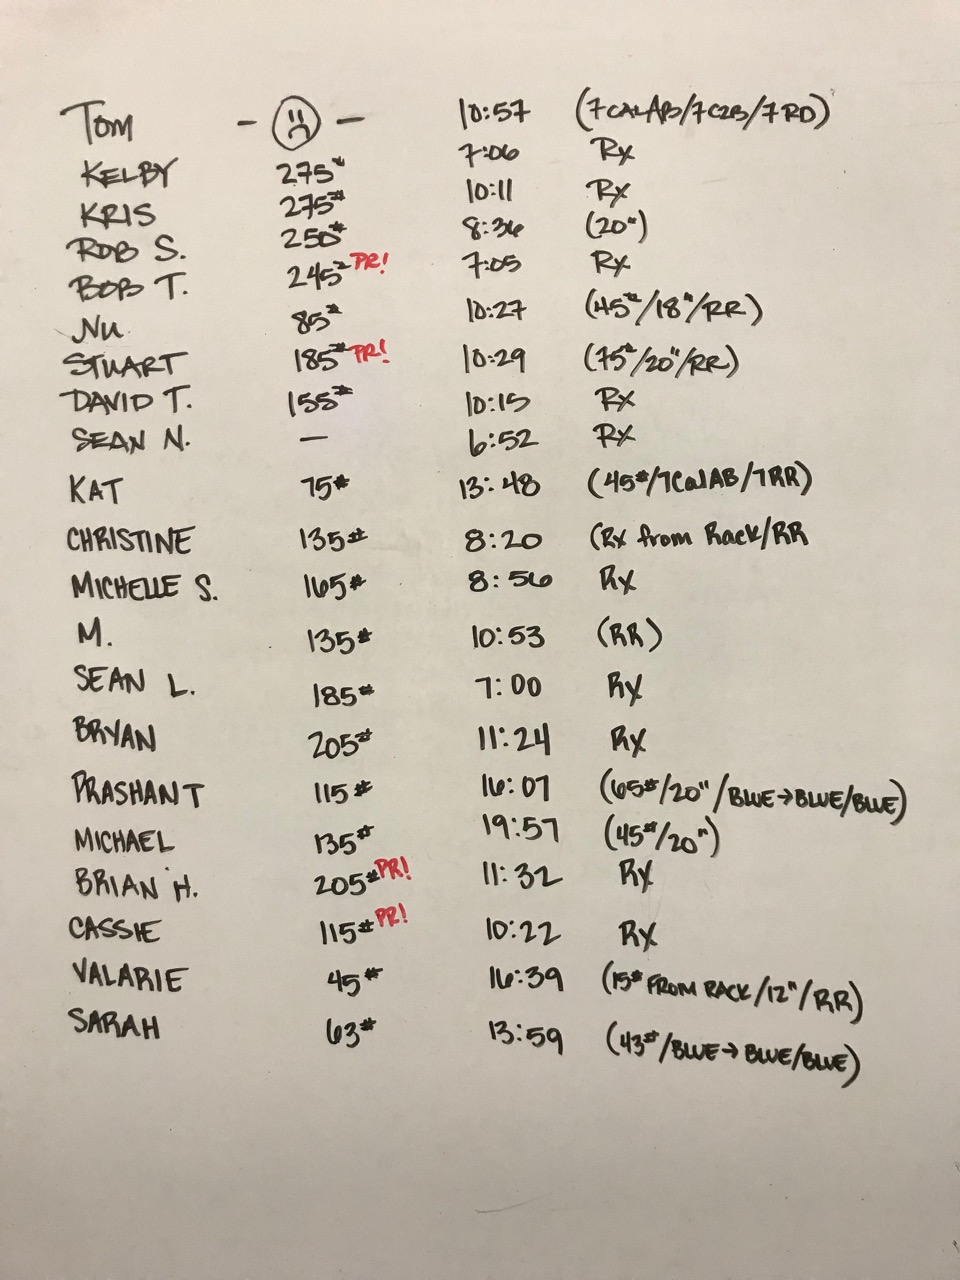 Tom - - 10:57 (7 CAL AB/7 C2B/7 RD)
KELBY 275# 7:06 Rx
KRIS 275# 10:11 Rx
ROB S. 250# 8:36 (20")
BOB T. 245# PR! 7:05 Rx
NU 85# 10:27 (45#/18"/RR)
STUART 185# PR! 10:29 (75#/20"/RR)
DAVID T. 155# 10:15 Rx
SEAN N. — 6:52 Rx
KAT 75# 13:48 (45#/7 Cal AB/7 RR)
CHRISTINE 135# 8:20 (Rx from Rack/RR
MICHELLE S. 165# 8:56 Rx
M. 135# 10:53 (RR)
SEAN L. 185# 7:00 Rx
BRYAN 205# 11:24 Rx
PRASHANT 115# 16:07 (65#/20"/BLUE→BLUE/BLUE)
MICHAEL 135# 19:57 (45#/20")
BRIAN H. 205# PR! 11:32 Rx
CASSIE 115# PR! 10:22 Rx
VALARIE 45# 16:39 (15# FROM RACK/12"/RR)
SARAH 63# 13:59 (43#/BLUE→BLUE/BLUE)